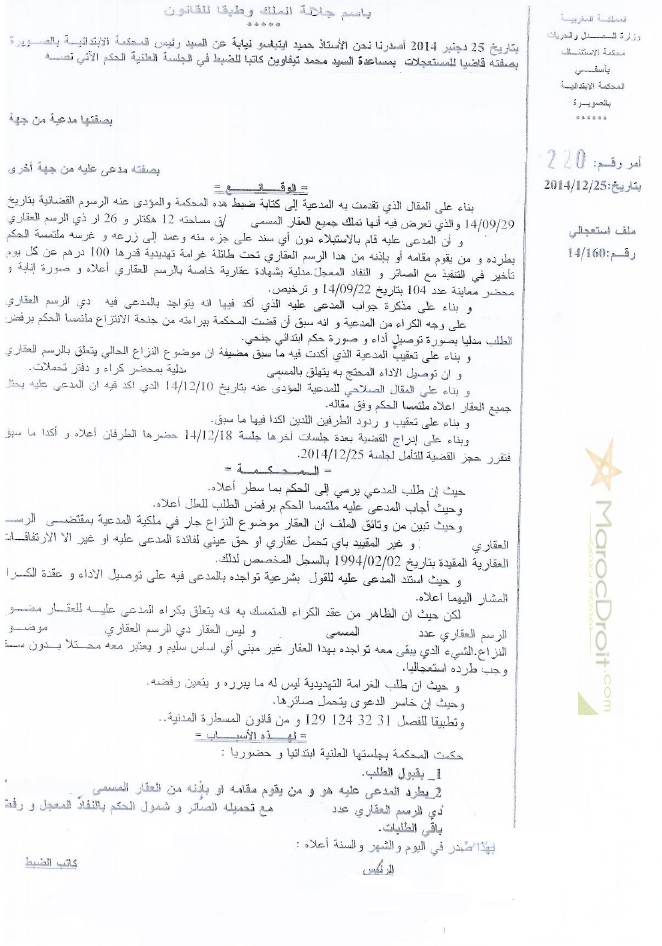 باسم جلالة الملك وطبقا للقانون
*****
المملكة المغربية
وزارة العدل والحريات
محكمة الاستئناف
بآسفي
المحكمة الابتدائية
بالصويرة
******
أمر رقم: 220
بتاريخ: 2014/12/25
ملف استعجالي
رقم: 14/160
بتاريخ 25 دجنبر 2014 أصدرنا نحن الأستاذ حميد ايتباسو نيابة عن السيد رئيس المحكمة الابتدائية بالصويرة
بصفته قاضيا للمستعجلات بمساعدة السيد محمد تيفاوين كاتبا للضبط في الجلسة العلنية الحكم الآتي نصه
بصفتها مدعية من جهة
بصفته مدعى عليه من جهة أخرى
= الوقائع =
بناء على المقال الذي تقدمت به المدعية إلى كتابة ضبط هذه المحكمة والمؤدى عنه الرسوم القضائية بتاريخ
14/09/29 والذي تعرض فيه أنها تملك جميع العقار المسمى /ق مساحته 12 هكتار و 26 ار ذي الرسم العقاري
و أن المدعى عليه قام بالاستيلاء دون أي سند على جزء منه وعمد إلى زرعه و غرسه ملتمسة الحكم
بطرده و من يقوم مقامه أو بإذنه من هدا الرسم العقاري تحت طائلة غرامة تهديدية قدرها 100 درهم عن كل يوم
تأخير في التنفيذ مع الصائر و النفاد المعجل.مدلية بشهادة عقارية خاصة بالرسم العقاري أعلاه و صورة إنابة و
محضر معاينة عدد 104 بتاريخ 14/09/22 و ترخيص.
و بناء على مذكرة جواب المدعى عليه الذي أكد فيها انه يتواجد بالمدعى فيه دي الرسم العقاري
على وجه الكراء من المدعية و انه سبق أن قضت المحكمة ببراءته من جنحة الانتزاع ملتمسا الحكم برفض
الطلب مدليا بصورة توصيل أداء و صورة حكم ابتدائي جنحي.
و بناء على تعقيب المدعية الذي أكدت فيه ما سبق مضيفة ان موضوع النزاع الحالي يتعلق بالرسم العقاري
و ان توصيل الاداء المحتج به يتهلق بالمسمى مدلية بمحضر كراء و دفتر تحملات.
و بناء على المقال الصلاحي للمدعية المؤدى عنه بتاريخ 14/12/10 الدي اكد فيه ان المدعى عليه يحتل
جميع العقار اعلاه ملتمسا الحكم وفق مقاله.
و بناء على تعقيب و ردود الطرفين اللدين اكدا فيها ما سبق.
وبناء على إدراج القضية بعدة جلسات آخرها جلسة 14/12/18 حضرها الطرفان أعلاه و أكدا ما سبق
فتقرر حجز القضية للتأمل لجلسة 2014/12/25.
= المحكمة =
حيث إن طلب المدعي يرمي إلى الحكم بما سطر أعلاه.
وحيث أجاب المدعى عليه ملتمسا الحكم برفض الطلب للعلل أعلاه.
وحيث تبين من وثائق الملف ان العقار موضوع النزاع جار في ملكية المدعية بمقتضى الرسم
العقاري و غير المقييد بأي تحمل عقاري او حق عيني لفائدة المدعى عليه او غير الا الارتفاقات
العقارية المقيدة بتاريخ 1994/02/02 بالسجل المخصص لدلك.
و حيث استند المدعى عليه للقول بشرعية تواجده بالمدعى فيه على توصيل الاداء و عقدة الكراء
المشار اليهما اعلاه.
لكن حيث ان الظاهر من عقد الكراء المتمسك به انه يتعلق بكراء المدعى عليه للعقار
الرسم العقاري عدد المسمى و ليس العقار دي الرسم العقاري
النزاع.الشيء الدي يبقى معه تواجده بهدا العقار غير مبني أي أساس سليم و يعتبر معه محتلا بدون
وجب طرده استعجاليا.
و حيث ان طلب الغرامة التهديدية ليس له ما يبرره و يتعين رفضه.
وحيث إن خاسر الدعوى يتحمل صائرها.
وتطبيقا للفصل 31 32 124 129 و من قانون المسطرة المدنية..
= لهذه الأسباب =
حكمت المحكمة بجلستها العلنية ابتدائيا و حضوريا :
1_ بقبول الطلب.
2_بطرد المدعى عليه هو و من يقوم مقامه او بإذنه من العقار المسمى
دي الرسم العقاري عدد مع تحميله الصائر و شمول الحكم بالنفاذ المعجل و رفض
باقي الطلبات.
بهذا صدر في اليوم والشهر و السنة أعلاه :
الرئيس
كاتب الضبط
MarocDroit.com